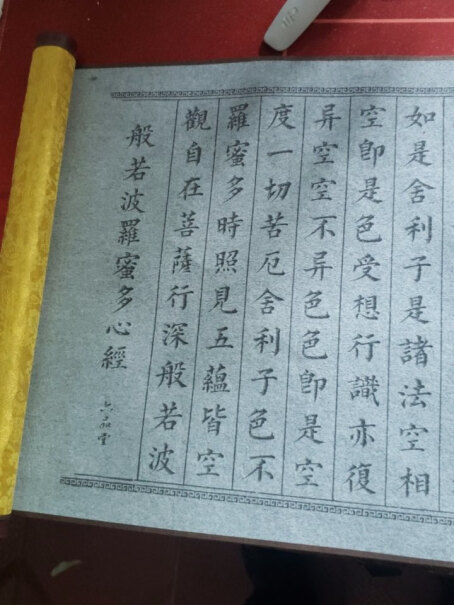 般若波羅蜜多心經
六品堂
觀自在菩薩行深般若波
羅蜜多時照見五蘊皆空
度一切苦厄舍利子色不
异空空不异色色即是空
空即是色受想行識亦復
如是舍利子是諸法空相